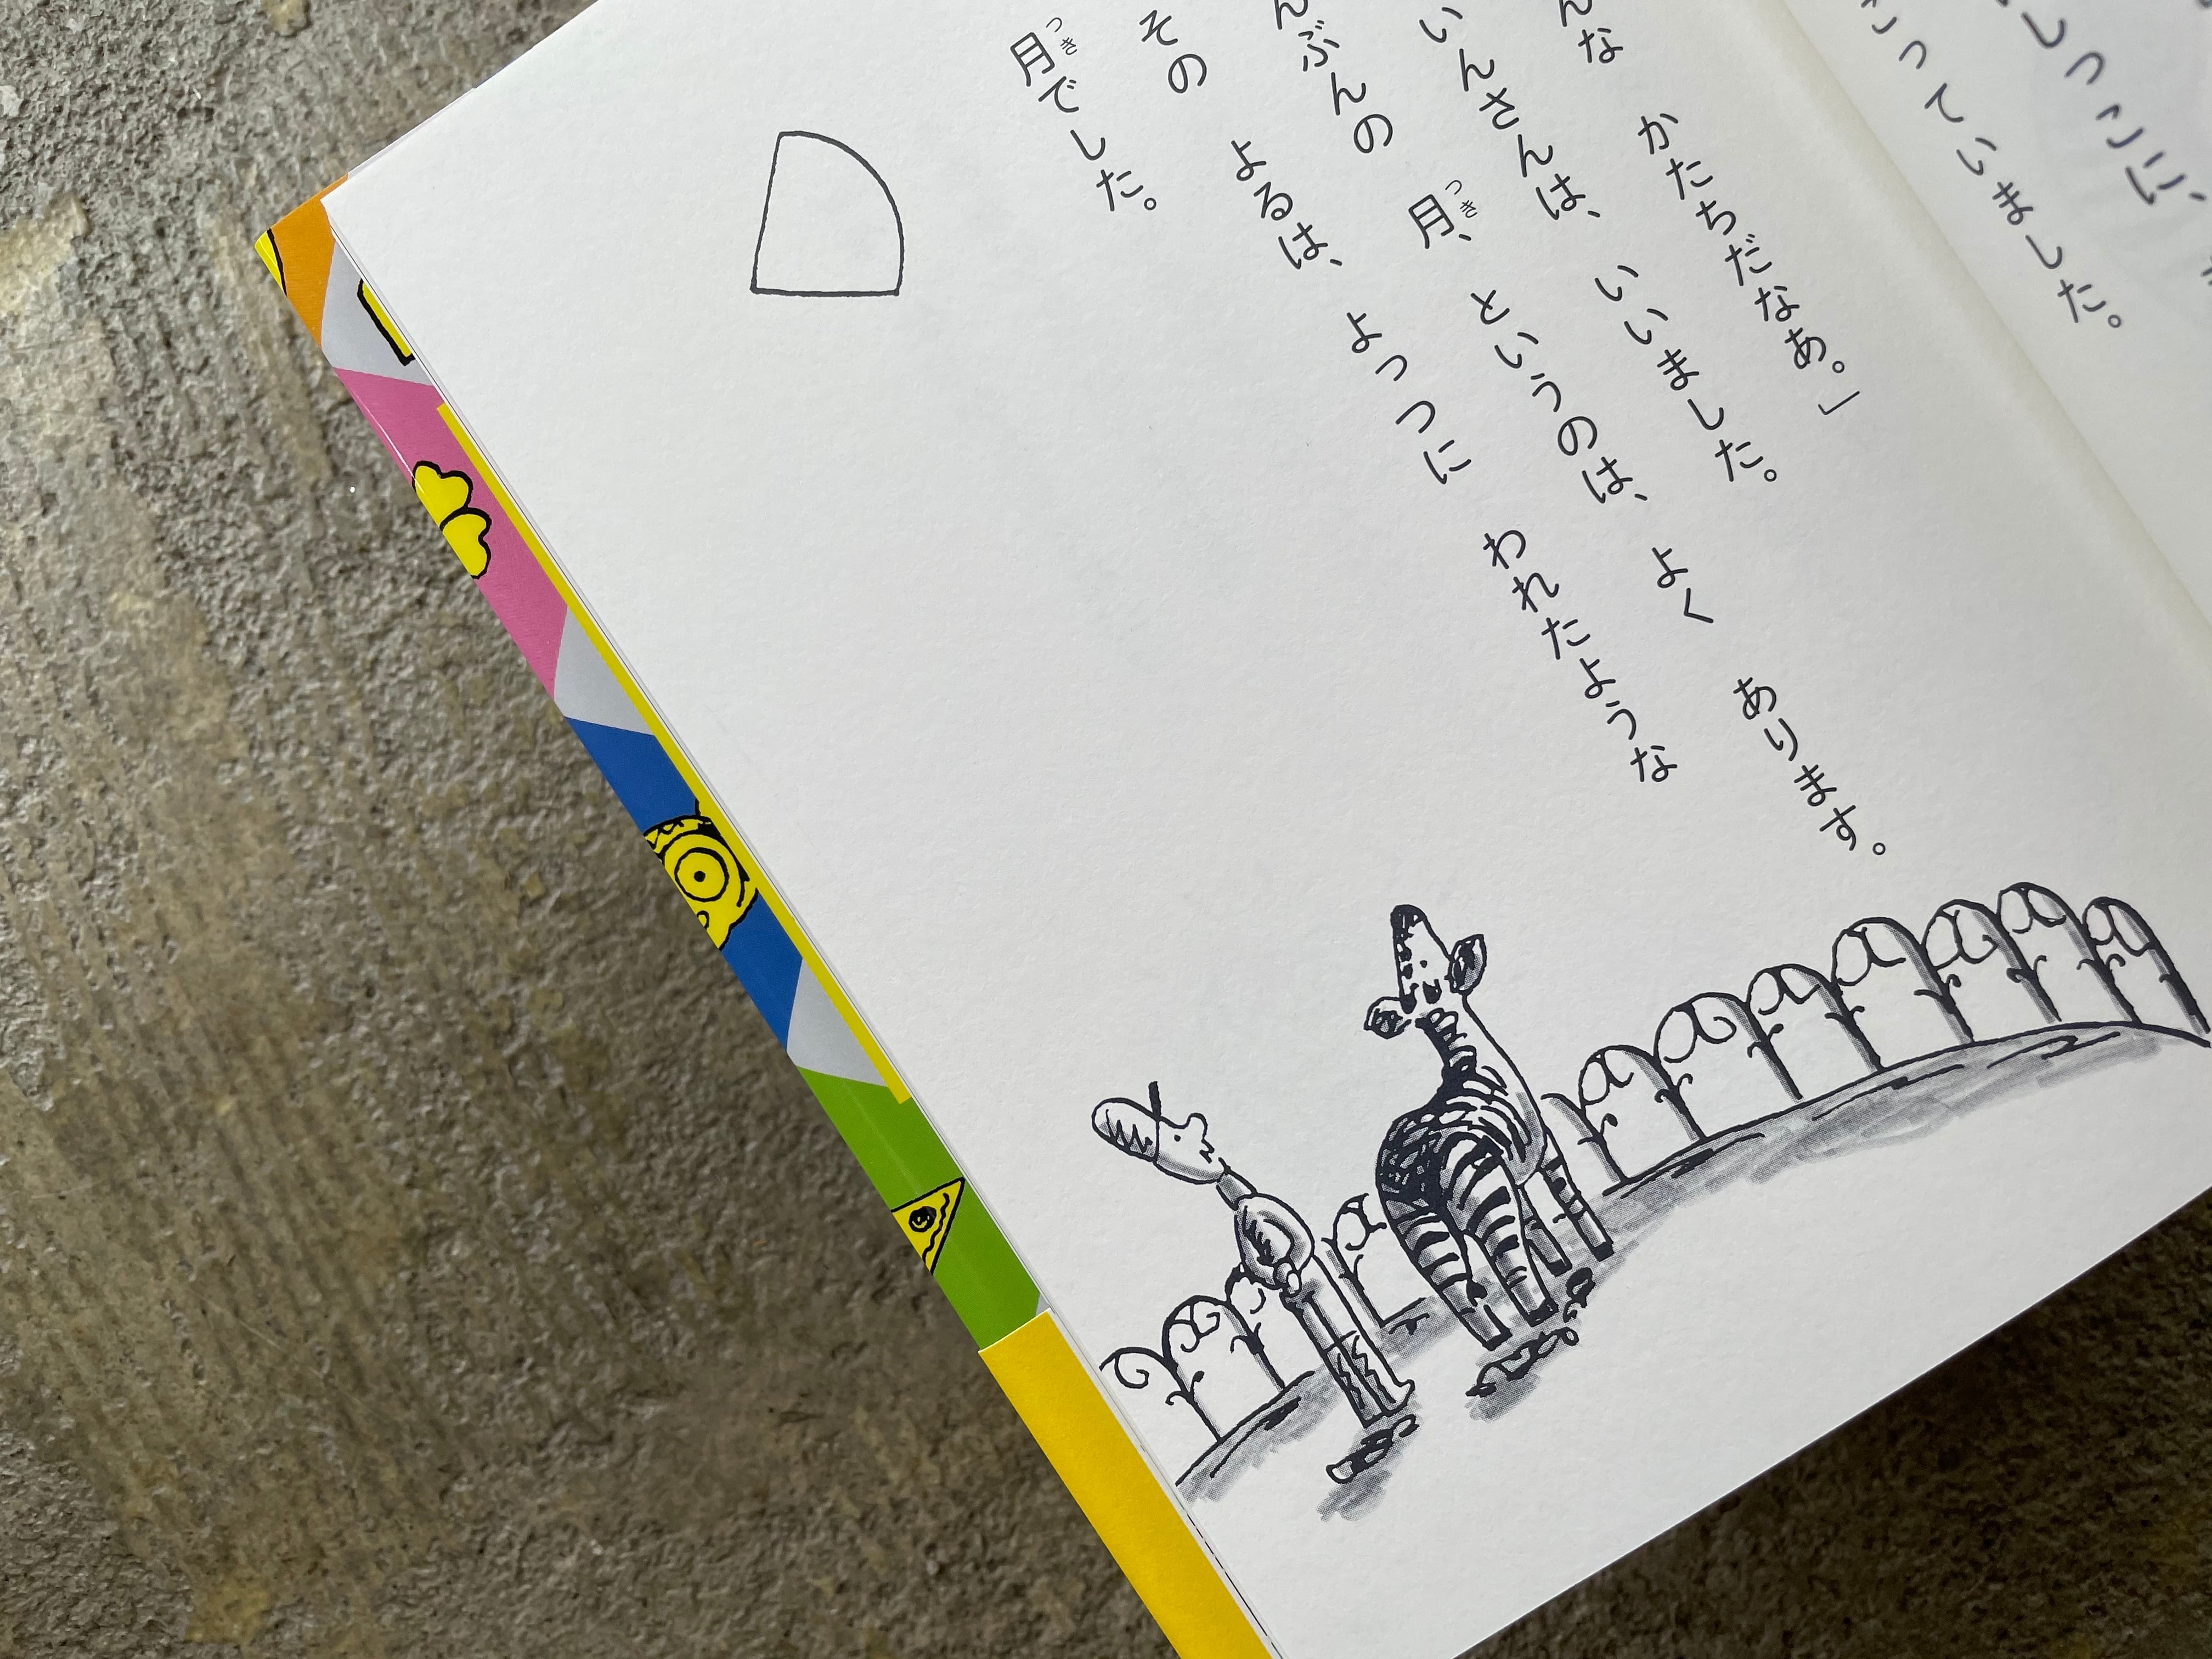 しっこに、
っていました。
んな かたちだなあ。」
いんさんは、 いいました。
んぶんの 月、 というのは、 よく あります。
つき
その よるは、 よっつに われたような
月でした。
つき